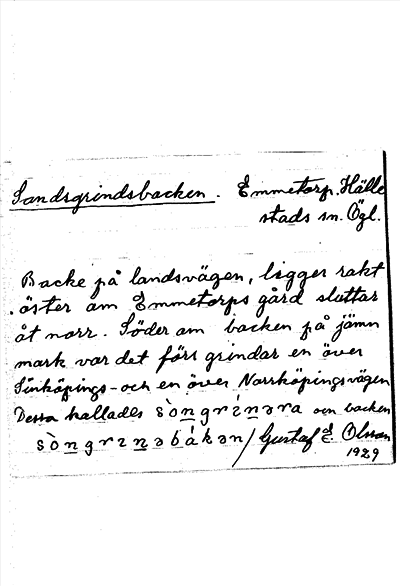 Sandsgrindsbacken. Emmetorp. Hälle
stads sn. Ögl.
Backe på landsvägen, ligger rakt
öster om Emmetorps gård sluttar
åt norr. Söder om backen på jämn
mark var det förs grindar en över
Linköpings- och en över Norrköpingsvägen
Dessa kallades sòngrínəra och backen
sòngrɪnəbàkən / Gustaf Olsson
1929